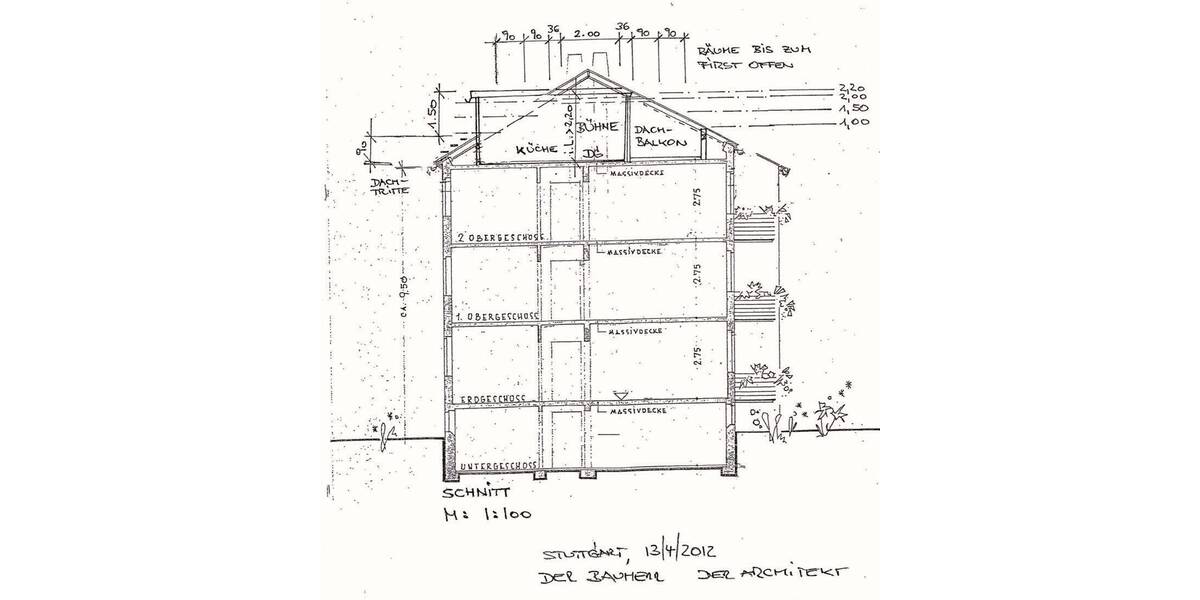 90 90 36 2.00 36 90 90
RÄUME BIS ZUM
FIRST OFFEN
2,20
2,00
1,50
1,00
1.50
90
KÜCHE
i.L. > 2,20
BÜHNE
DG
DACH-
BALKON
DACH-
TRITTE
MASSIVDECKE
2.75
2 OBERGESCHOSS
MASSIVDECKE
2.75
ca. 9.50
1. OBERGESCHOSS
MASSIVDECKE
2.75
ERDGESCHOSS
MASSIVDECKE
UNTERGESCHOSS
SCHNITT
M: 1:100
STUTTGART, 13/4/2012
DER BAUHERR DER ARCHITEKT